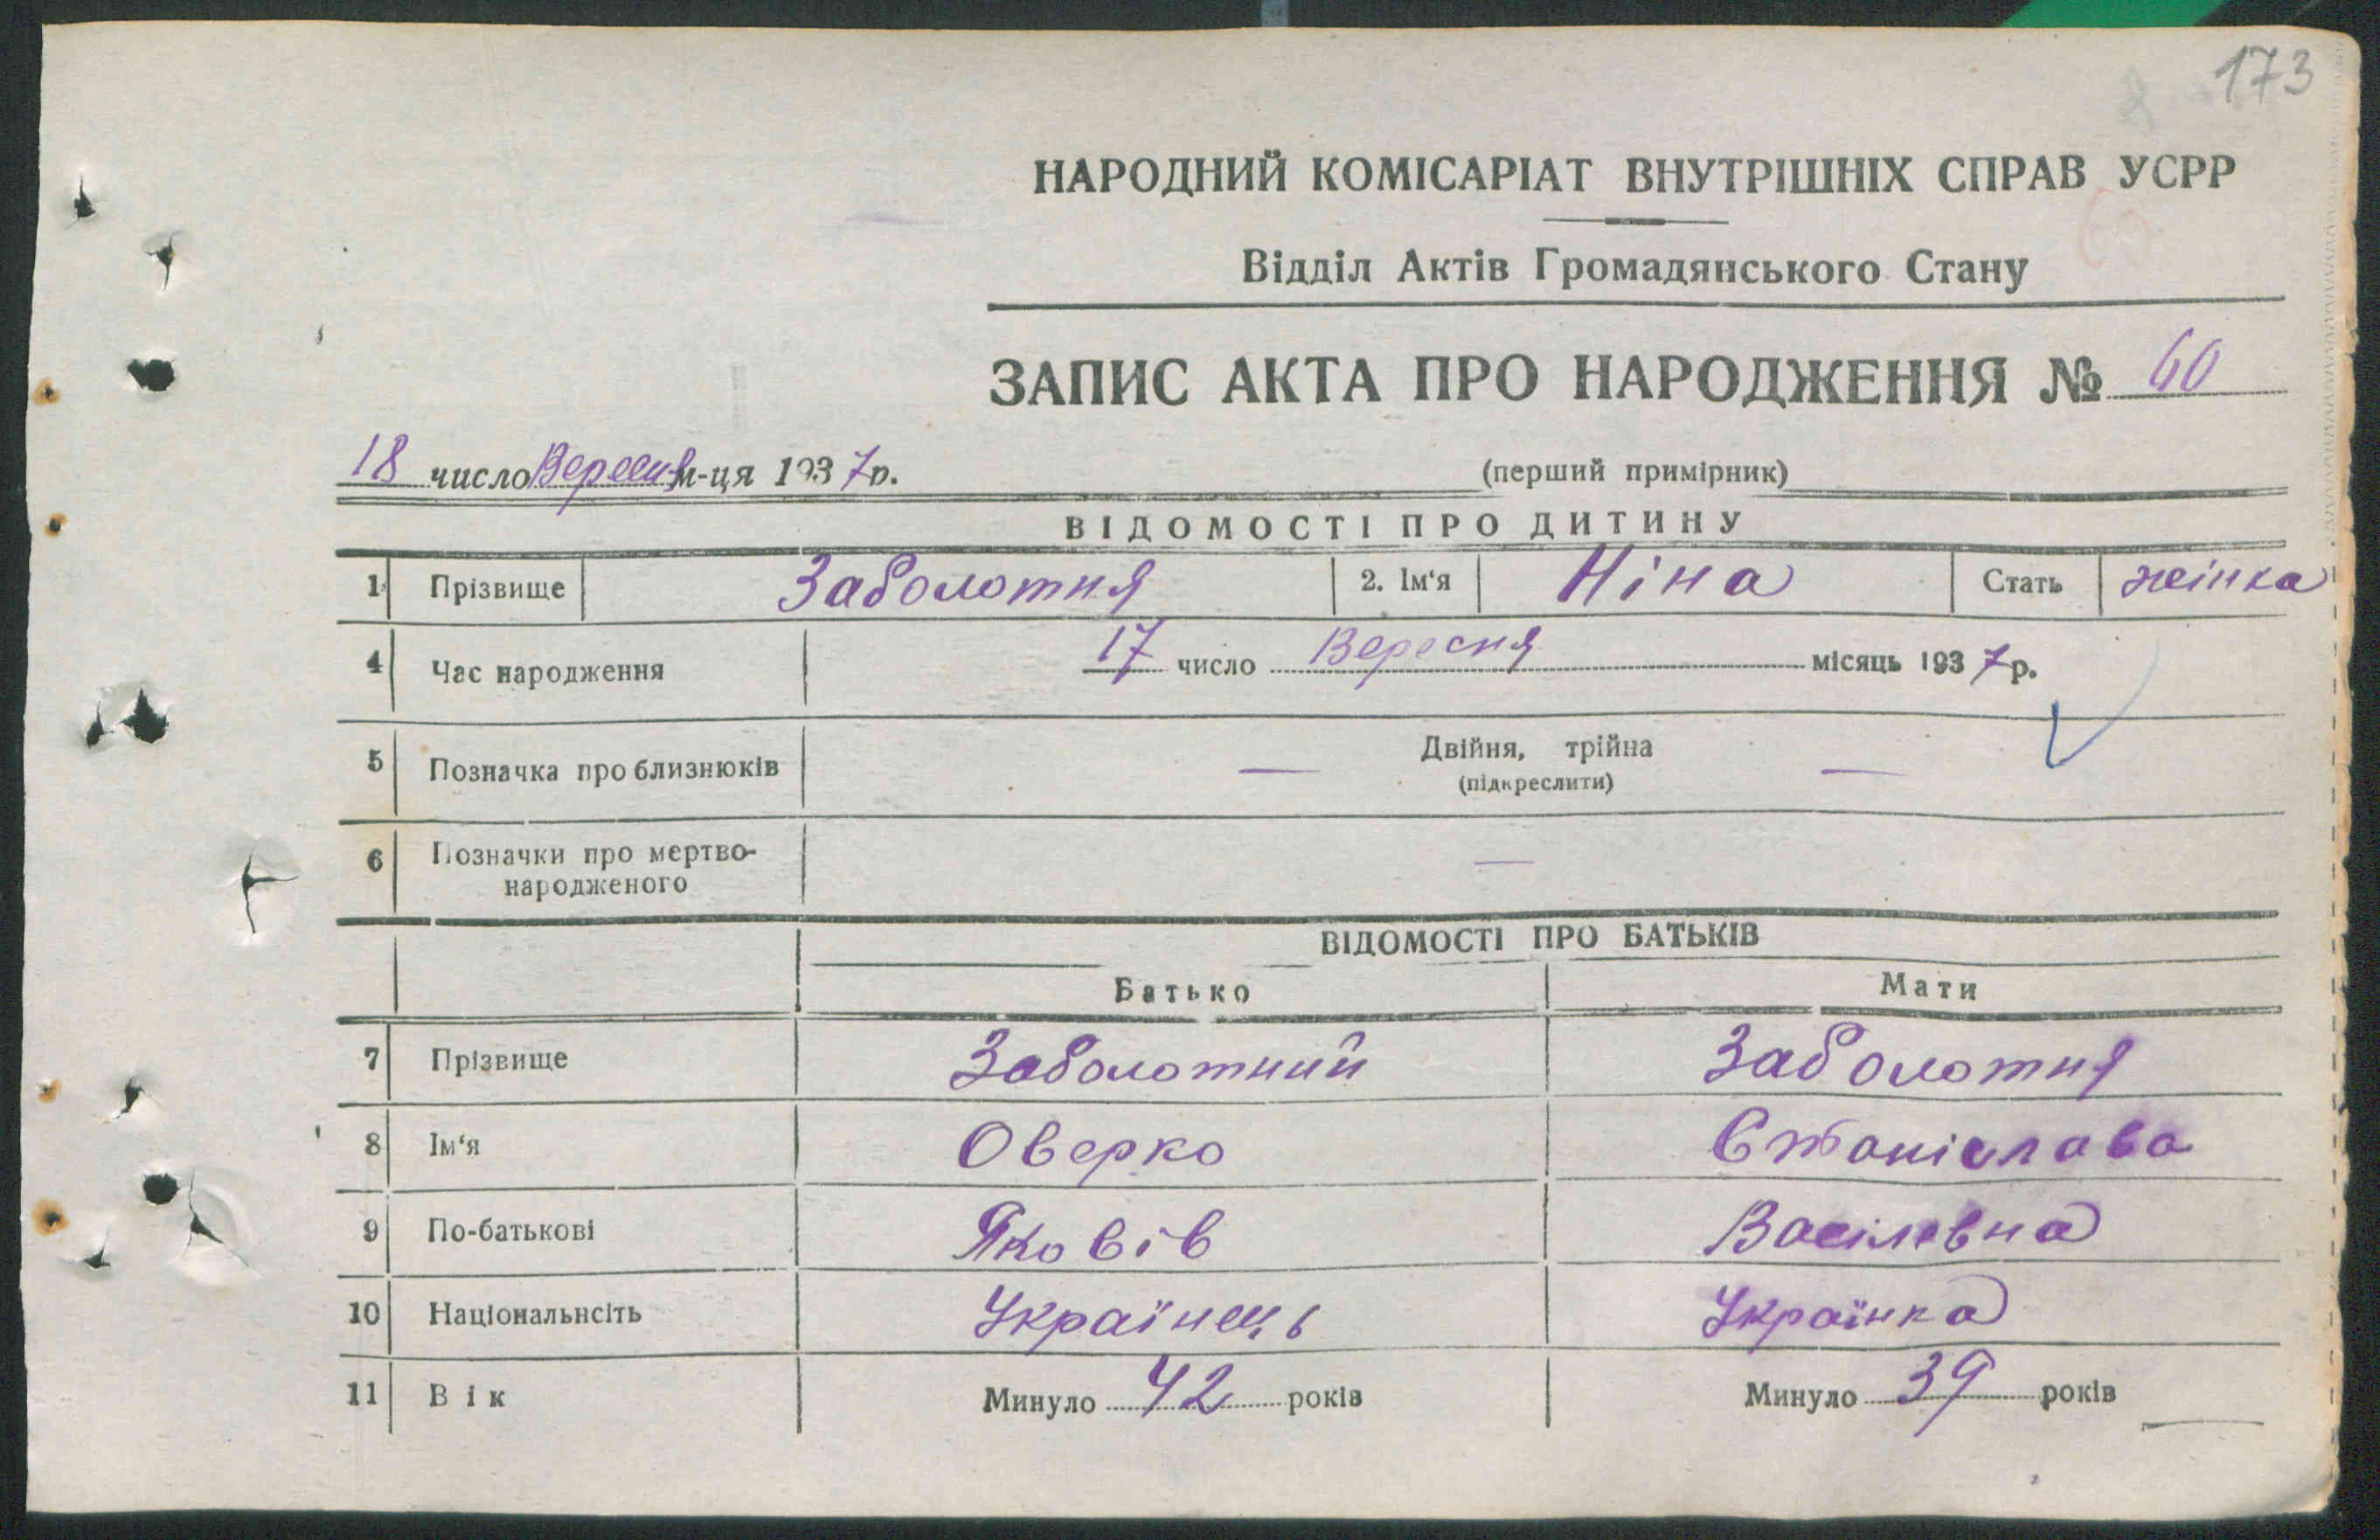 173
НАРОДНИЙ КОМІСАРІАТ ВНУТРІШНІХ СПРАВ УСРР
Відділ Актів Громадянського Стану
ЗАПИС АКТА ПРО НАРОДЖЕННЯ № 60
18 число Вересня м-ця 1937 р.
(перший примірник)
ВІДОМОСТІ ПРО ДИТИНУ
1 Прізвище Заболотня 2. Ім'я Ніна Стать жінка
4 Час народження 17 число Вересня місяць 1937 р.
5 Позначка про близнюків — Двійня, трійна —
(підкреслити)
6 Позначки про мертво-
народженого —
ВІДОМОСТІ ПРО БАТЬКІВ
Батько Мати
7 Прізвище Заболотний Заболотня
8 Ім'я Оверко Станіслава
9 По-батькові Яковів Васілевна
10 Національнсіть Українець Українка
11 Вік Минуло 42 років Минуло 39 років